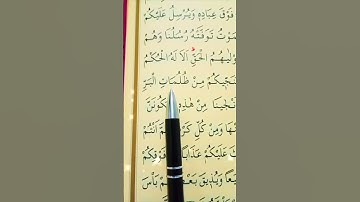 فَوْقَ عِبَادِهِ وَيُرْسِلُ عَلَيْكُمْ
مَوْتُ تَوَفَّتْهُ رُسُلُنَا وَهُمْ
وْلٰيهُمُ الْحَقِّ اَلَا لَهُ الْحُكْمُ
يُنَجّ۪يكُمْ مِنْ ظُلُمَاتِ الْبَرِّ
اَنْجٰينَا مِنْ هٰذِه۪ لَنَكُونَنَّ
مِنْهَا وَمِنْ كُلِّ كَرْبٍ ثُمَّ اَنْتُمْ
عَلَيْكُمْ عَذَابًا مِنْ فَوْقِكُمْ
يَعًا وَيُذ۪يقَ بَعْضَكُمْ بَأْسَ